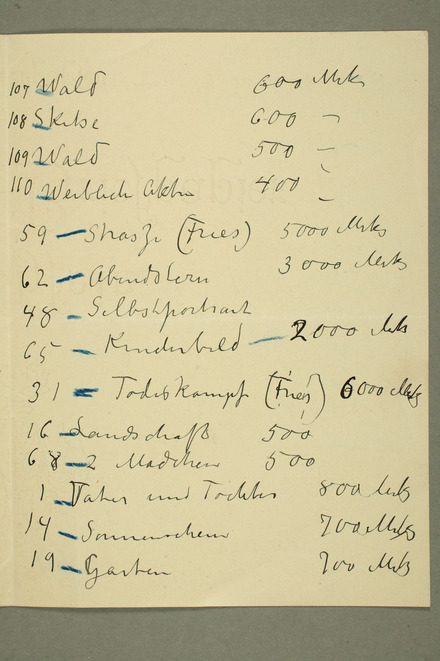 107 Wald 600 Mrks
108 Skitse 600 —
109 Wald 500 —
110 Weiblich Akten 400 —
59 — Strasze (Fries) 5000 Mrks
62 — Abendstern 3000 Mrks
48 — Selbstportrait
65 — Kinderbild — 2000 Mrks
31 — Todeskampf (Fries) 6000 Mrks
16 — Landschaft 500
68 — 2 Madchen 500
1 — Vater und Tochter 800 Mrks
14 — Sonnenschein 700 Mrks
19 — Garten 700 Mrks